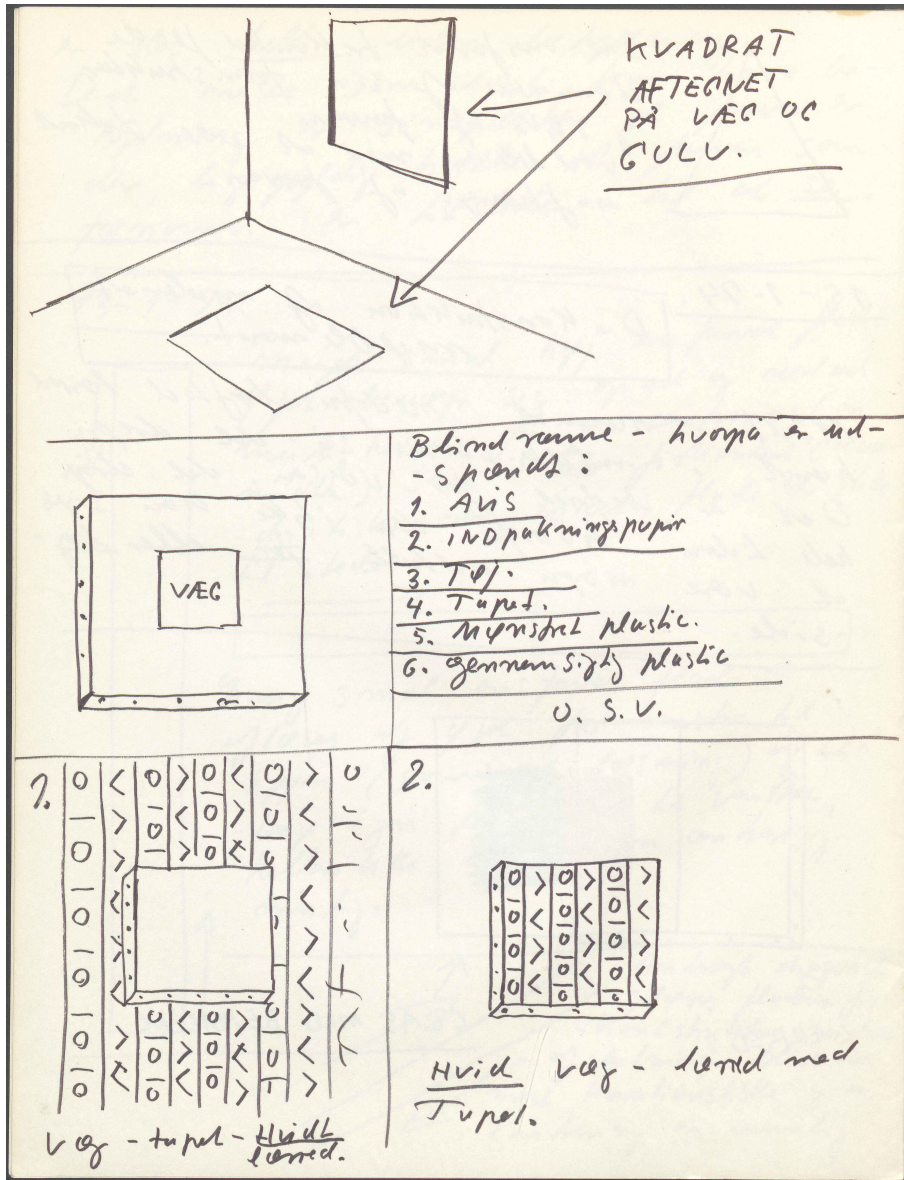 KVADRAT
AFTEGNET
PÅ VÆG OG
GULV.
Blindramme - hvorpå er ud-
- spændt :
1. AVIS
2. INDpakningspapir
3. Tøj.
4. Tapet.
5. Mønstret plastic.
6. gennemsigtig plastic
O. S. V.
VÆG
1.
2.
Væg - tapet - Hvidt
lærred.
Hvid væg - lærred med
Tapet.